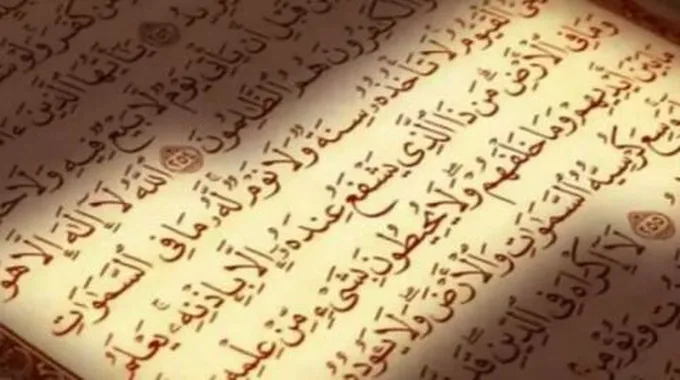 مَّن كَفَرَ وَلَوْ
يَٰٓأَيُّهَا ٱلَّذِينَ
قَبْلِ أَن يَأْتِىَ يَوْمٌ لَّا بَيْعٌ فِيهِ وَلَا
وَٱلْكَٰفِرُونَ هُمُ ٱلظَّٰلِمُونَ ٢٥٤ ٱللَّهُ لَآ إِلَٰهَ إِلَّا هُوَ
ٱلْقَيُّومُ لَا تَأْخُذُهُۥ سِنَةٌ وَلَا نَوْمٌ لَّهُۥ مَا فِى ٱلسَّمَٰوَٰتِ
وَمَا فِى ٱلْأَرْضِ مَن ذَا ٱلَّذِى يَشْفَعُ عِندَهُۥٓ إِلَّا بِإِذْنِهِۦ يَعْلَمُ
مَا بَيْنَ أَيْدِيهِمْ وَمَا خَلْفَهُمْ وَلَا يُحِيطُونَ بِشَىْءٍ مِّنْ عِلْمِهِۦٓ
وَسِعَ كُرْسِيُّهُ ٱلسَّمَٰوَٰتِ وَٱلْأَرْضَ وَلَا يَـُٔودُهُۥ
٢٥٥ لَآ إِكْرَاهَ فِى ٱلدِّينِ قَد
وَيُؤْمِنۢ